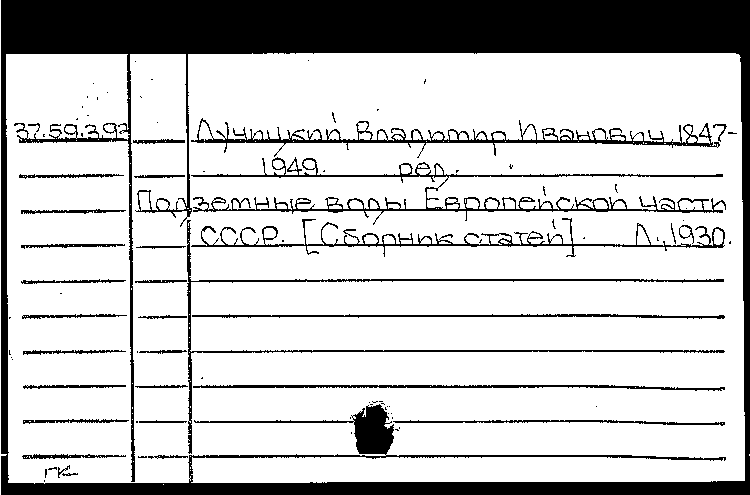 37.59.392 Лучицкий, Владимир Иванович, 1847-
1949. ред.
Подземные воды Европейской части
СССР. [Сборник статей]. Л., 1930.
ГК